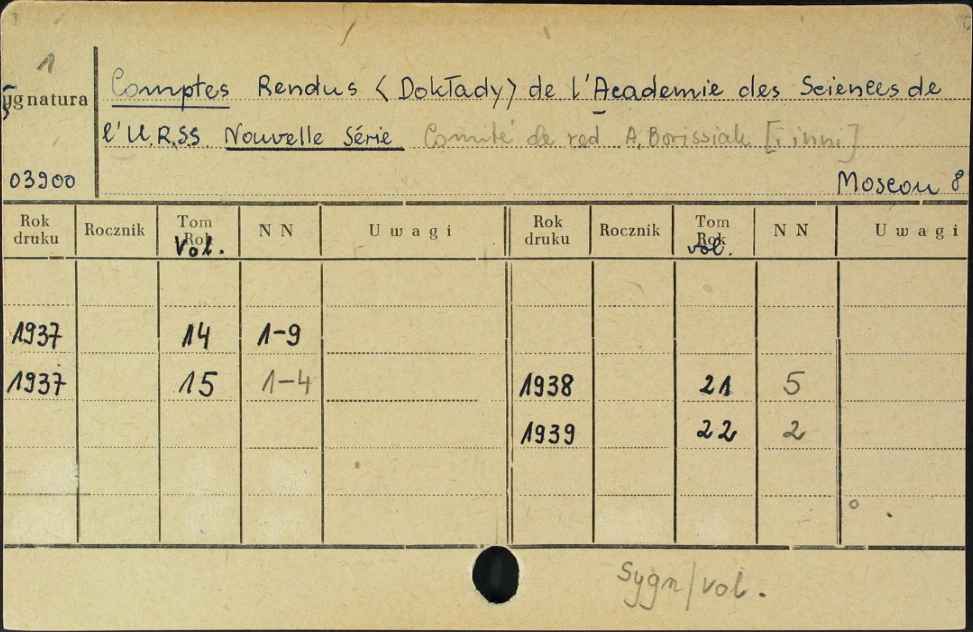 1
Sygnatura
Comptes Rendus <Dokłady> de l'Academie des Sciences de
l'U.R.S.S. Nouvelle Série Comité de red A. Borissiak [i inni]
03900
Moscou 8
Rok druku Rocznik Tom Rok Vol. NN Uwagi Rok druku Rocznik Tom Rok vol. NN Uwagi
1937 14 1-9
1937 15 1-4 1938 21 5
1939 22 2
Sygn/vol.